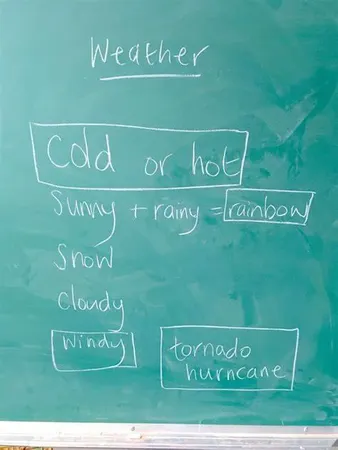 Weather
Cold or hot
Sunny + rainy = rainbow
Snow
Cloudy
Windy
tornado
hurricane